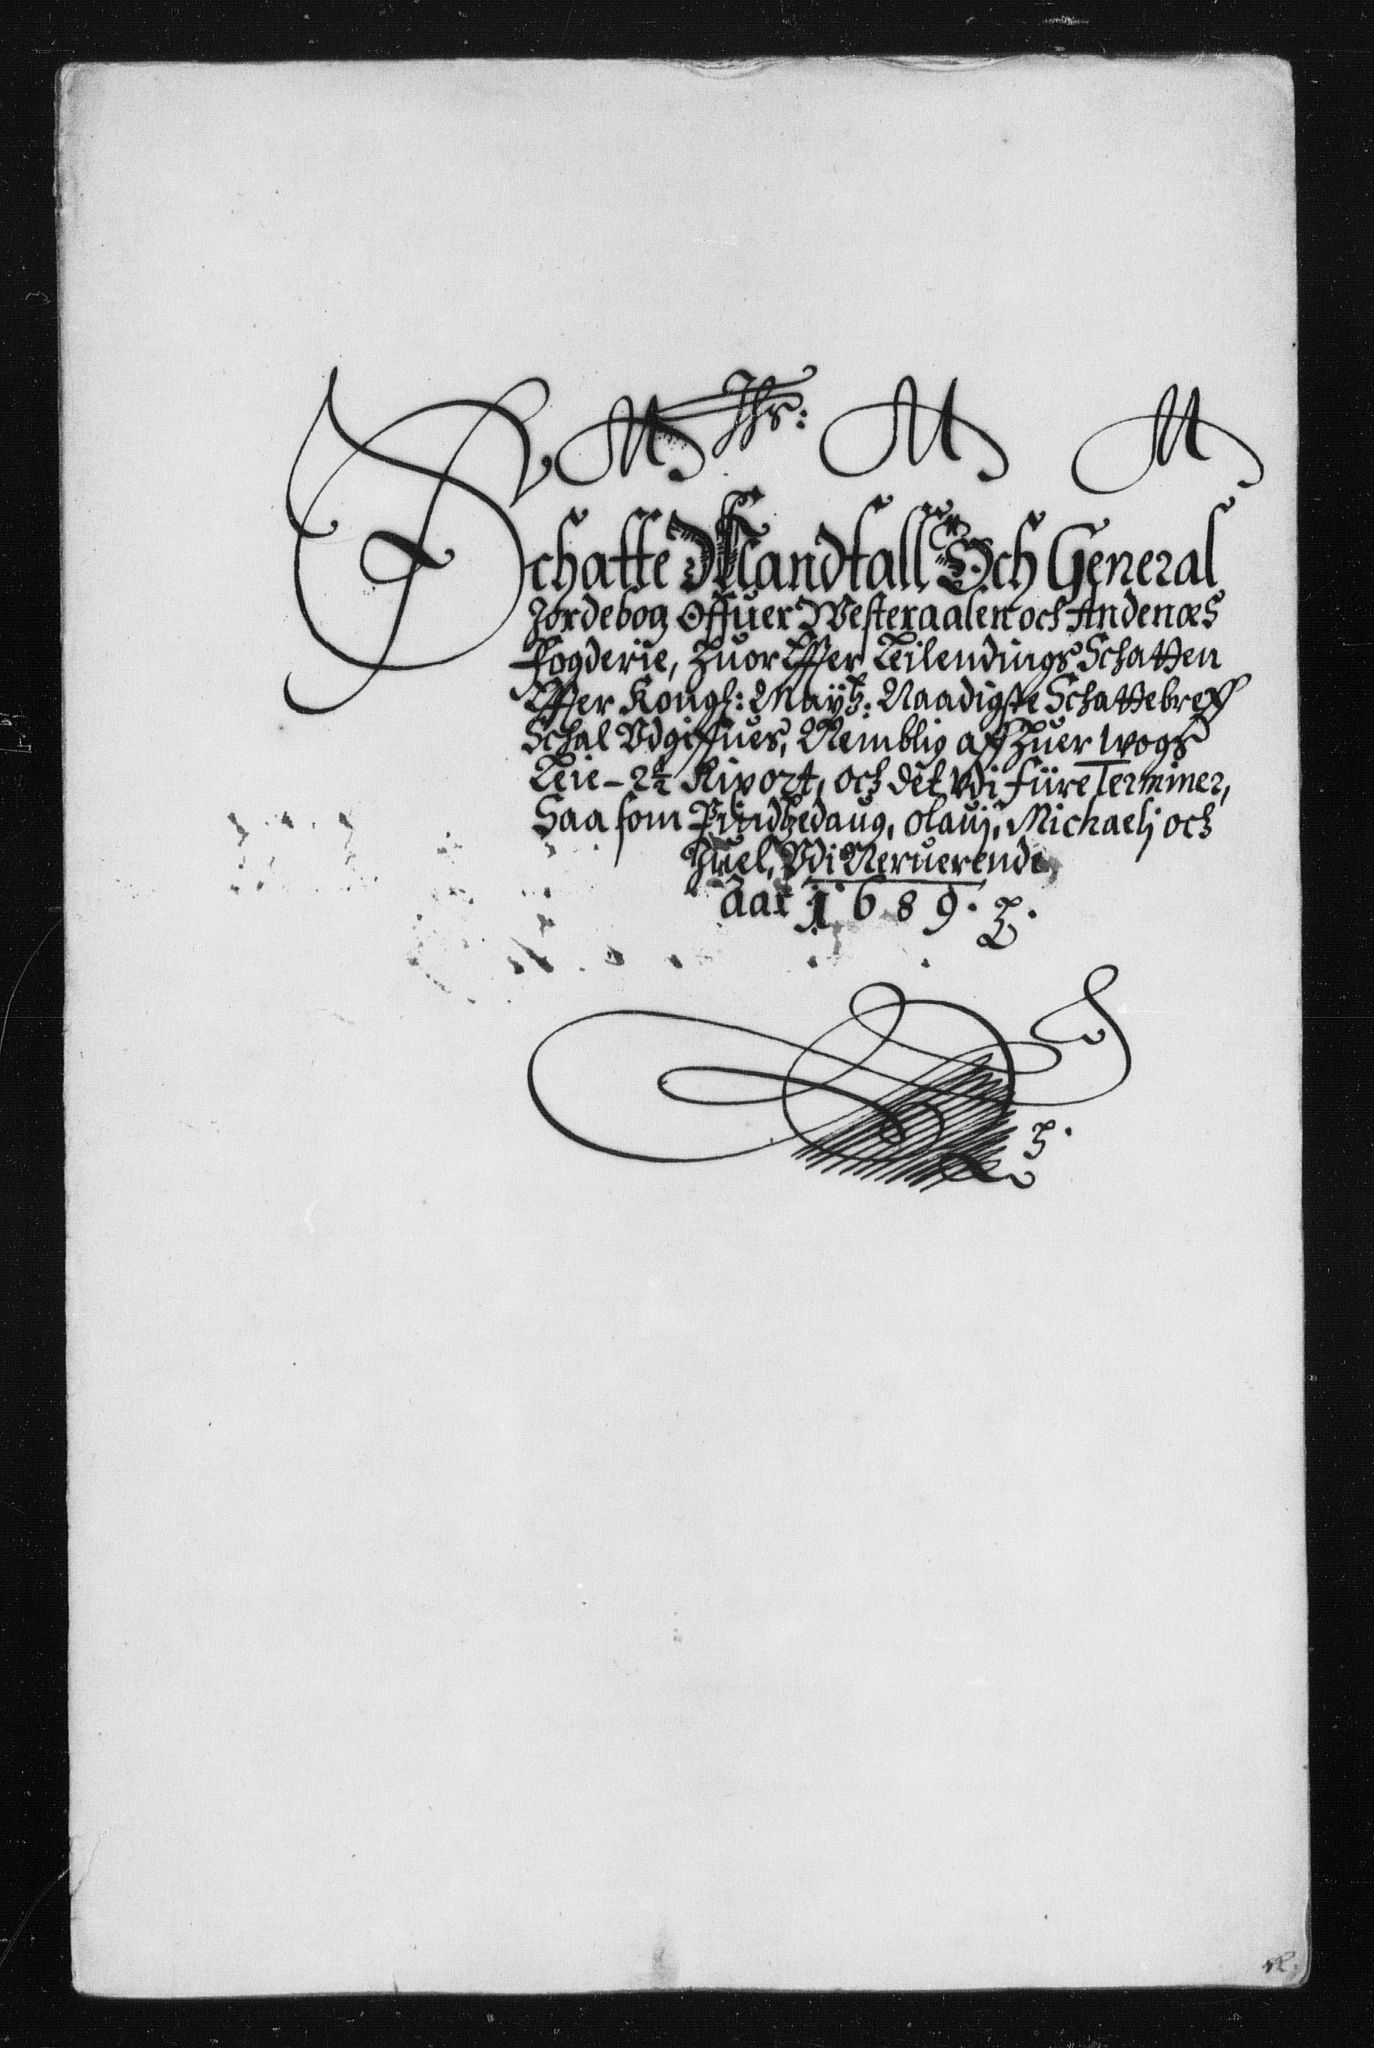 Jhs:
Schatte Mandtall Och General
Jordebog Offuer Westeraalen och Andenæs
Fogderie, huor Effter Leilendings Schatten
Effter Kongl: Maÿtz: Naadigste Schattebreff
Schal Udgiffues, Nemblig aff huer wogs
Leie - 2½ Rixort, och det Udi fiire Terminer,
Saa som Pindtzedaug, Olauj, Michaelj och
Juel, Udi Neruerende
Aar 1689.